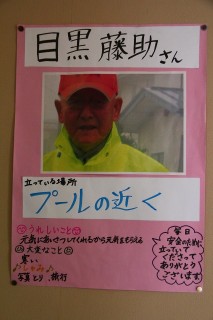 目黒 藤助さん
立っている場所
プールの近く
うれしいこと
元気にあいさつしてくれるから元気をもらえる
大変なこと
寒い
しゅみ
写真とり、旅行
毎日
安全のために
立っていて
くださって
ありがとう
ございます